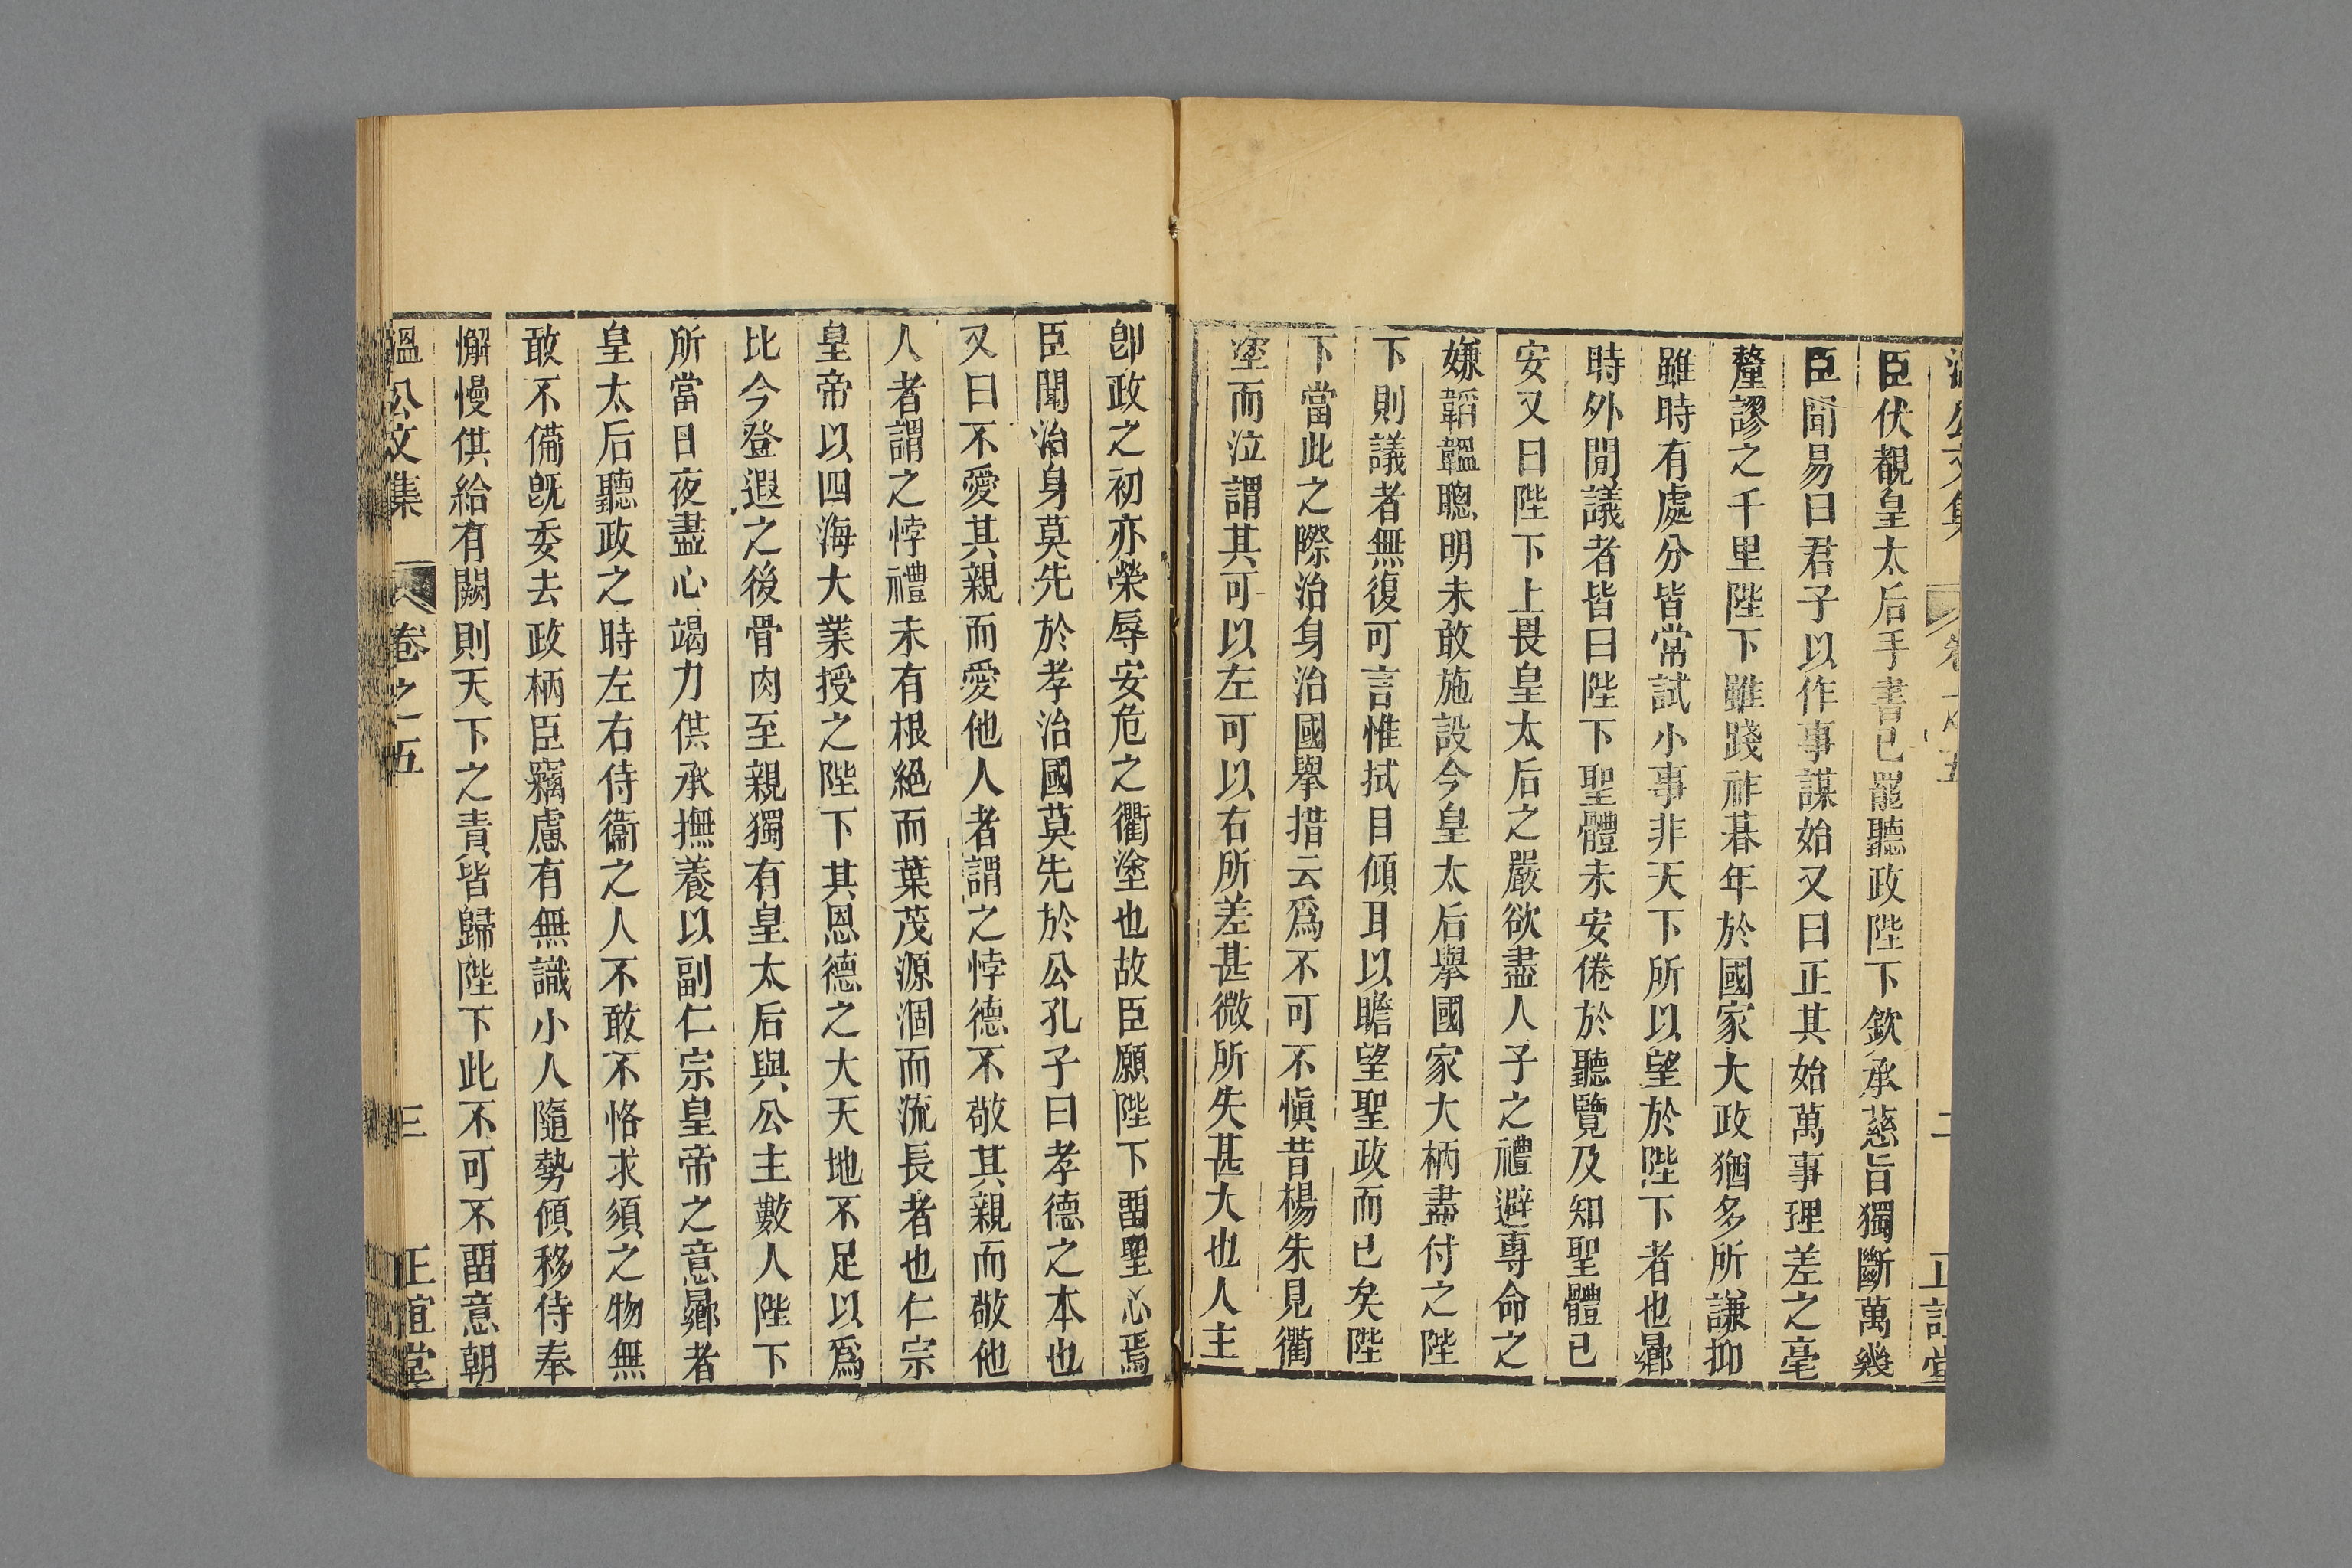 臣伏覩皇太后手書已罷聽政陛下欽承慈旨獨斷萬幾
臣聞易曰君子以作事謀始又曰正其始萬事理差之毫
釐謬之千里陛下雖踐祚朞年於國家大政猶多所謙抑
雖時有處分皆常試小事非天下所以望於陛下者也曏
時外間議者皆曰陛下聖體未安倦於聽覽及知聖體已
安又曰陛下上畏皇太后之嚴欲盡人子之禮避專命之
嫌韜韞聰明未敢施設今皇太后舉國家大柄盡付之陛
下則議者無復可言惟拭目傾耳以瞻望聖政而已矣陛
下當此之際治身治國舉措云爲不可不愼昔楊朱見衢
塗而泣謂其可以左可以右所差甚微所失甚大也人主
卽政之初亦榮辱安危之衢塗也故臣願陛下畱聖心焉
臣聞治身莫先於孝治國莫先於公孔子曰孝德之本也
又曰不愛其親而愛他人者謂之悖德不敬其親而敬他
人者謂之悖禮未有根絕而葉茂源涸而流長者也仁宗
皇帝以四海大業授之陛下其恩德之大天地不足以爲
比今登遐之後骨肉至親獨有皇太后與公主數人陛下
所當日夜盡心竭力供承撫養以副仁宗皇帝之意曏者
皇太后聽政之時左右侍衞之人不敢不恪求須之物無
敢不備旣委去政柄臣竊慮有無識小人隨勢傾移侍奉
懈慢供給有闕則天下之責皆歸陛下此不可不畱意朝
溫公文集 卷之五 三 正誼堂